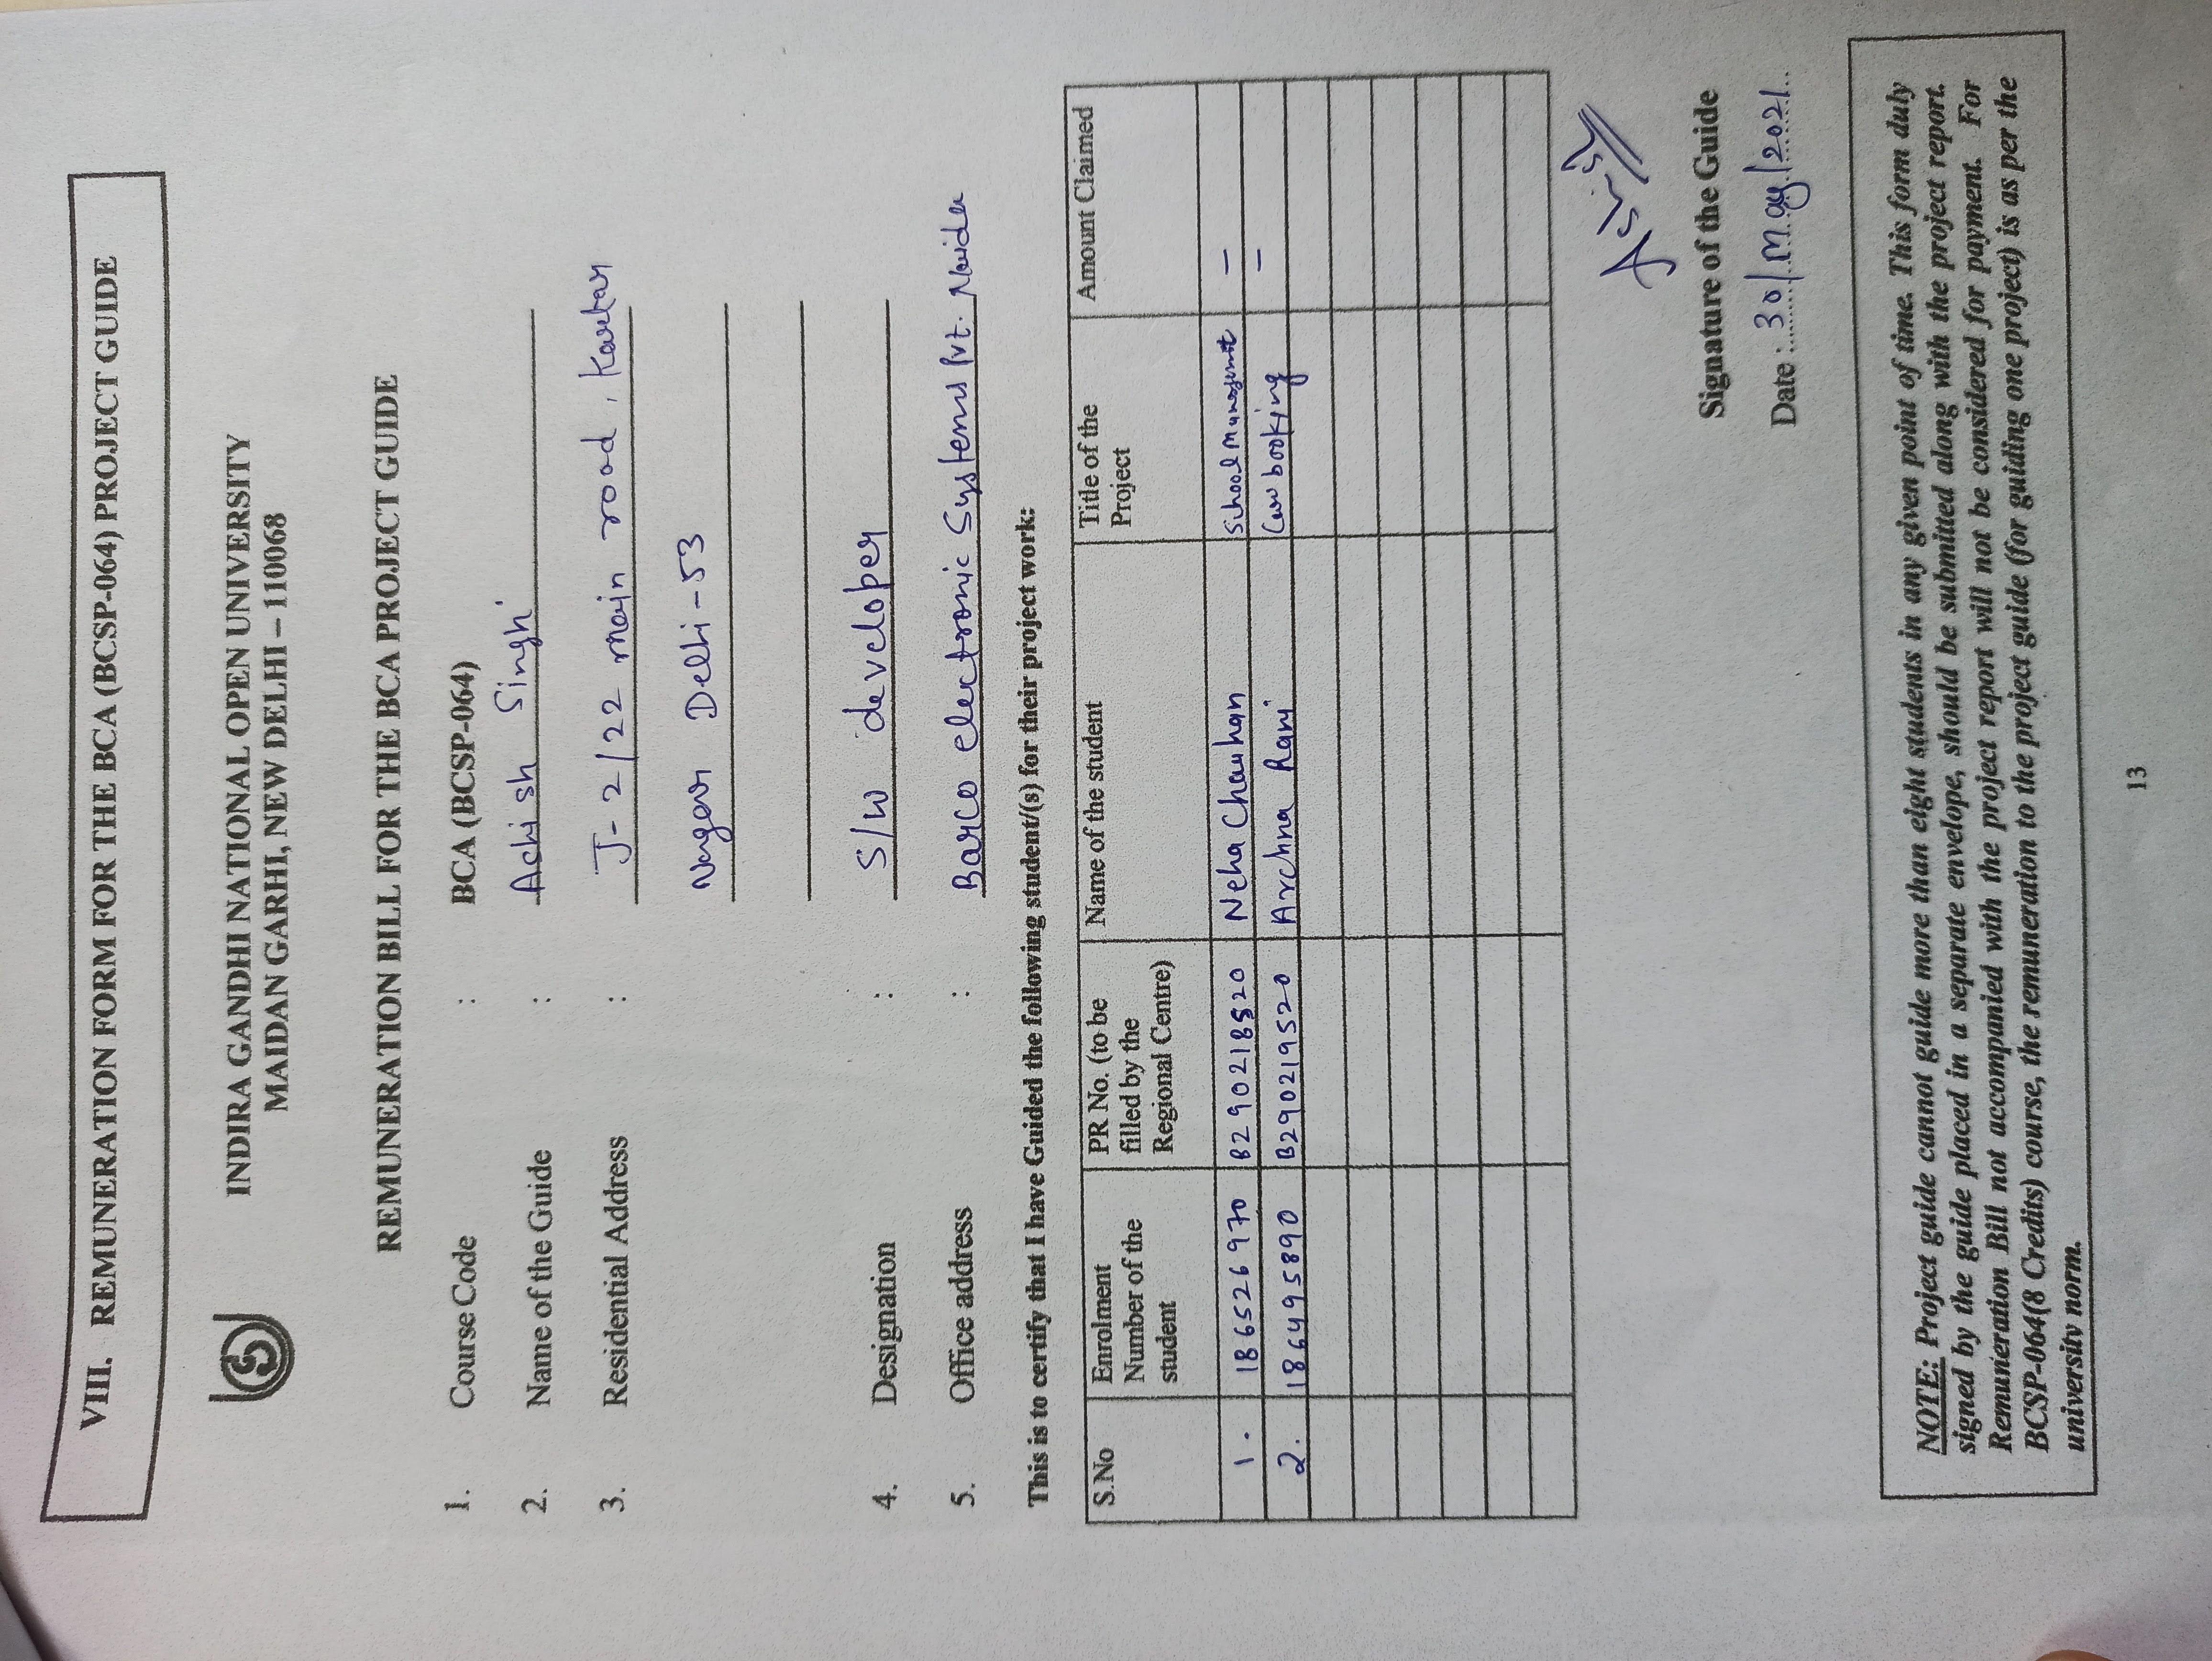 VIII. REMUNERATION FORM FOR THE BCA (BCSP-064) PROJECT GUIDE
INDIRA GANDHI NATIONAL OPEN UNIVERSITY
MAIDAN GARHI, NEW DELHI – 110068
REMUNERATION BILL FOR THE BCA PROJECT GUIDE
1. Course Code : BCA (BCSP-064)
2. Name of the Guide : Ashish Singh
3. Residential Address : J-2/22 main road, Kartar
Nagar Delhi-53
4. Designation : S/W developer
5. Office address : Barco electronic Systems Pvt. Noida
This is to certify that I have Guided the following student/(s) for their project work:
S.No Enrolment Number of the student PR No. (to be filled by the Regional Centre) Name of the student Title of the Project Amount Claimed
1. 186526970 B290218520 Neha Chauhan School management –
2. 186495890 B290219520 Archna Rani Car booking –
Ashish
Signature of the Guide
Date : 30/May/2021
NOTE: Project guide cannot guide more than eight students in any given point of time. This form duly
signed by the guide placed in a separate envelope, should be submitted along with the project report.
Remuneration Bill not accompanied with the project report will not be considered for payment. For
BCSP-064(8 Credits) course, the remuneration to the project guide (for guiding one project) is as per the
university norm.
13